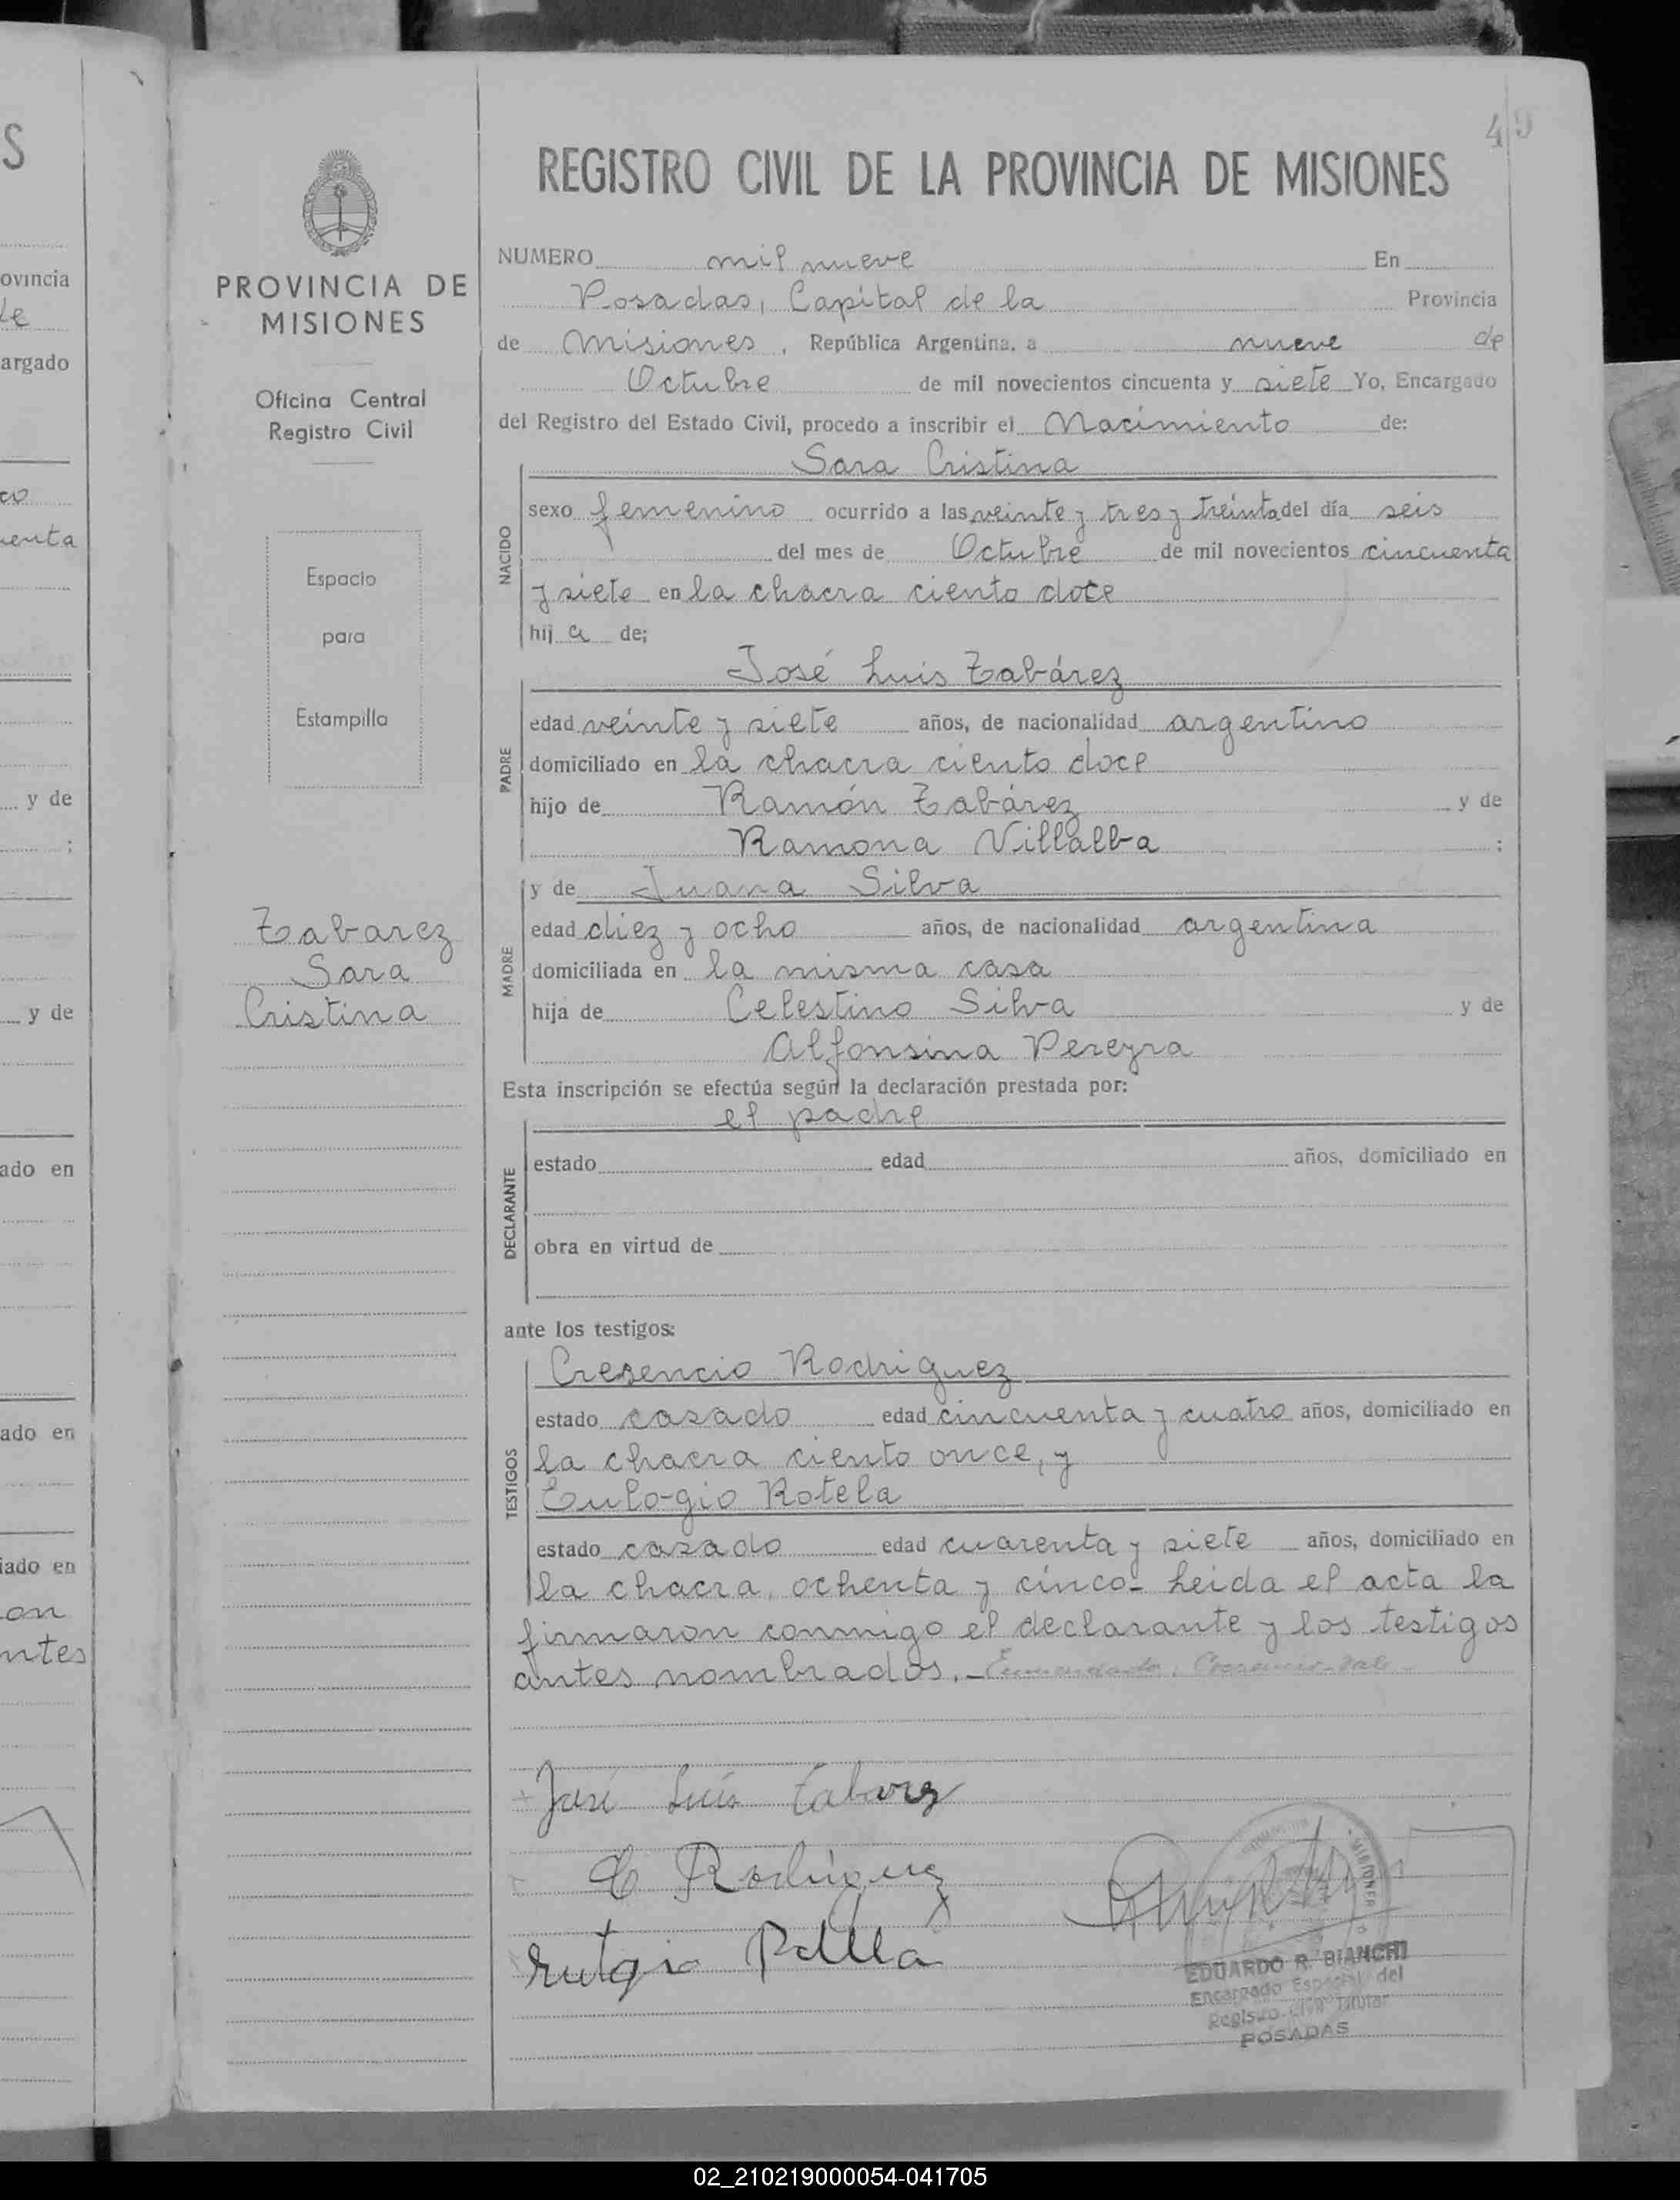 49
REGISTRO CIVIL DE LA PROVINCIA DE MISIONES
PROVINCIA DE
MISIONES
Oficina Central
Registro Civil
Espacio
para
Estampilla
Tabarez
Sara
Cristina
NUMERO mil nueve En
Posadas, Capital de la Provincia
de Misiones, República Argentina, a nueve de
Octubre de mil novecientos cincuenta y siete Yo, Encargado
del Registro del Estado Civil, procedo a inscribir el Nacimiento de:
NACIDO
Sara Cristina
sexo femenino ocurrido a las veinte y tres y treinta del día seis
del mes de Octubre de mil novecientos cincuenta
y siete en la chacra ciento doce
hij a de;
PADRE
José Luis Tabárez
edad veinte y siete años, de nacionalidad argentino
domiciliado en la chacra ciento doce
hijo de Ramón Tabárez y de
Ramona Villalba ;
MADRE
y de Juana Silva
edad diez y ocho años, de nacionalidad argentina
domiciliada en la misma casa
hija de Celestino Silva y de
Alfonsina Pereyra
Esta inscripción se efectúa según la declaración prestada por:
DECLARANTE
el padre
estado edad años, domiciliado en
obra en virtud de
ante los testigos:
TESTIGOS
Cresencio Rodriguez
estado casado edad cincuenta y cuatro años, domiciliado en
la chacra ciento once, y
Eulogio Rotela
estado casado edad cuarenta y siete años, domiciliado en
la chacra, ochenta y cinco- Leida el acta la
firmaron conmigo el declarante y los testigos
antes nombrados.- Enmendado: Cresencio-Vale-
José Luis Tabarez
C Rodriguez
EDUARDO R. BIANCHI
Encargado Especial del
Registro Civil Titular
POSADAS
ovincia
argado
enta
y de
;
y de
ado en
ado en
iado en
on
ntes
02_210219000054-041705